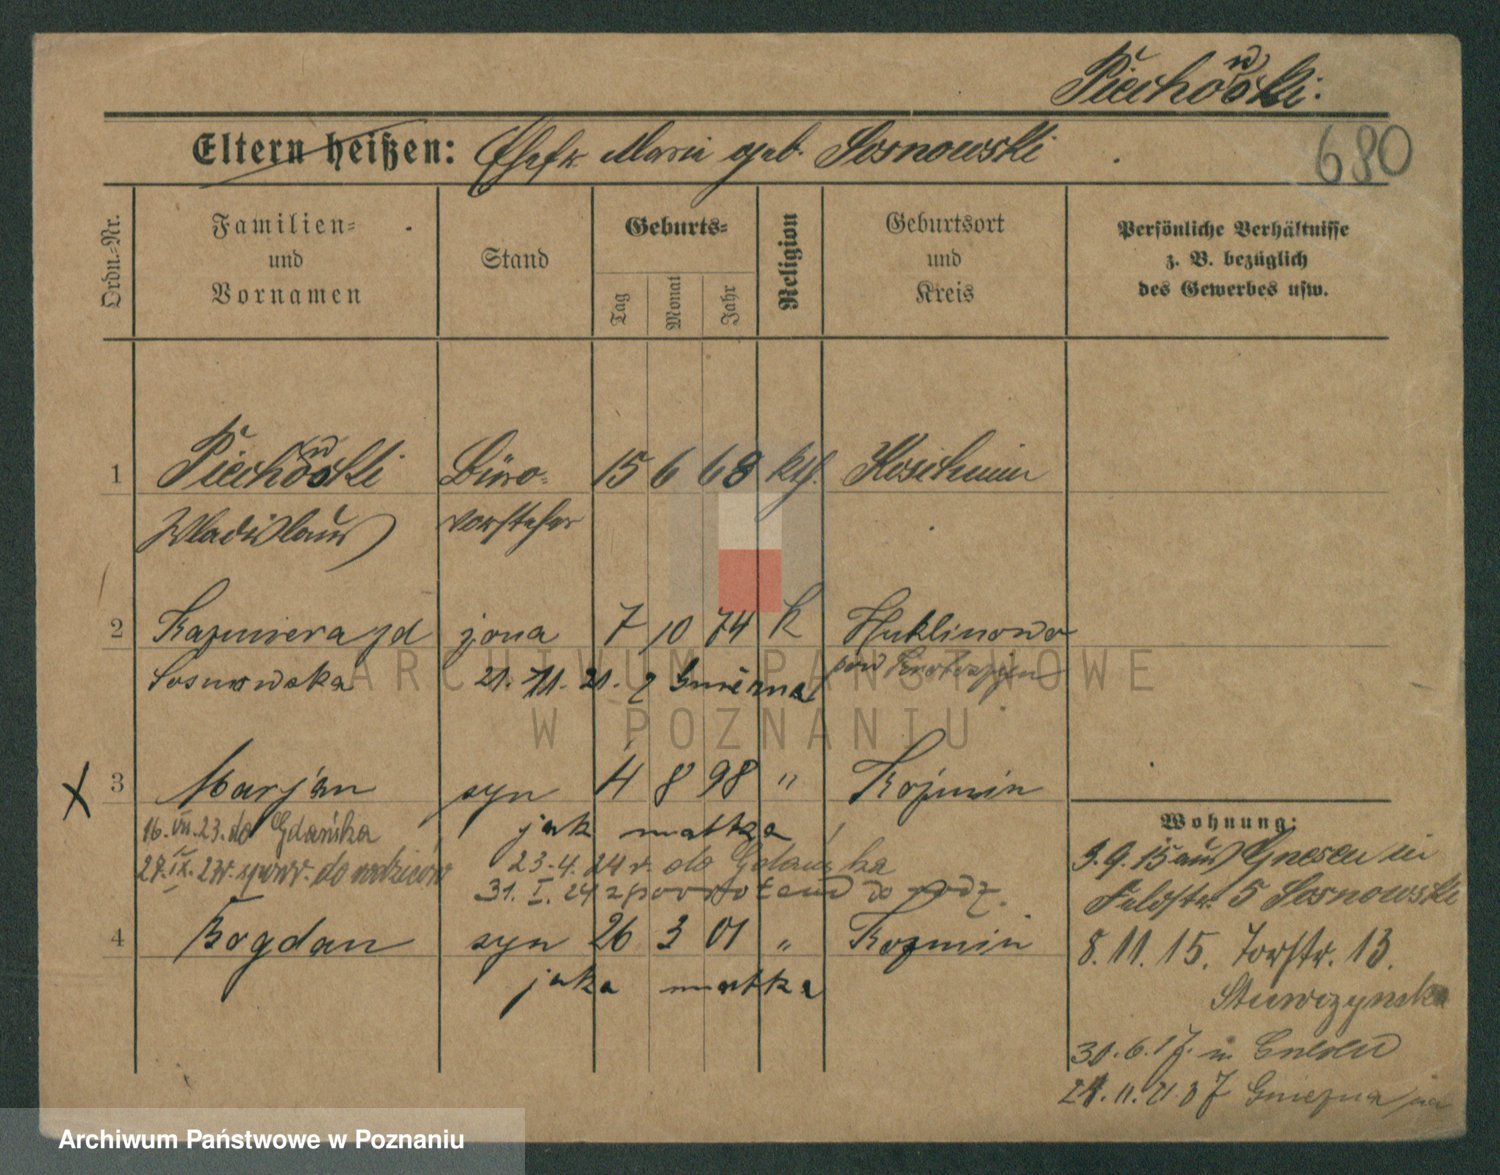 Piechowski.
Eltern heißen: Ehefr. Marie geb. Sosnowski
680
Ordn.-Nr.
Familien- und Vornamen
Stand
Geburts-
Tag
Monat
Jahr
Religion
Geburtsort und Kreis
Persönliche Verhältnisse z. B. bezüglich des Gewerbes usw.
1 Piechowski Büro- 15 6 68 kth. Koschmin
Wladislaus vorsteher
2 Kazimiera zd żona 7 10 74 k Huklinowo
Sosnowska 21. 11. 21. z Gniezna pow Krotoszyn
ARCHIWUM PAŃSTWOWE
W POZNANIU
X 3 Marjan syn 4 8 98 " Kozmin
16. VII. 23. do Gdańska jak matka
27. IX. 23r. do rodziców 23.4.24r. do Gdańska
31. I. 24 z powrotem do rodz.
4 Bogdan syn 26 3 01 " Kozmin
jaka matka
Wohnung:
3.9.15 aus Gnesen in
Feldstr. 5 Sosnowski
8.11.15. Torstr. 13.
30.6.17. n. Gnesen
21.11.21 z Gniezna
Archiwum Państwowe w Poznaniu